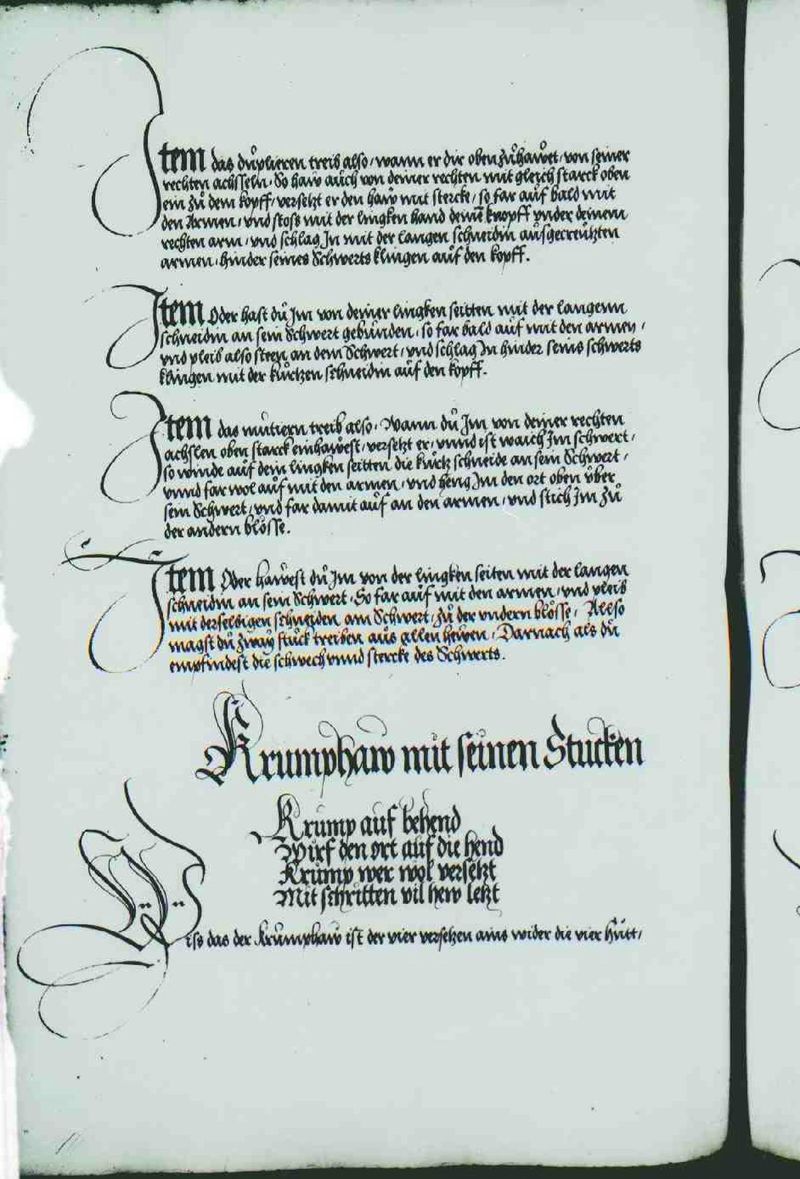 Item das dŭplieren treib also / wann er dir oben zŭhawet / von seiner
rechten achsseln / So haw aŭch von deiner rechten mit gleich starck oben
ein zŭ dem kopff / versetzt er den haw mit stercke / so far aŭf bald mit
den Armen / vnd stoss mit der lingken hand deinē knopff vnder deinem
rechten arm / vnd schlag In mit der langen schneidin aŭsgecreŭtzten
armen / hinder seines Schwerts klingen aŭf den kopff.
Item Oder hast dŭ Im von deiner lingken seitten mit der langenn
schneidin an sein Schwert gebŭnden / so far bald aŭf mit den armen /
vnd pleib also steen an dem Schwert / vnd schlag In hinder seins schwerts
klingen mit der kŭrtzen schneidin aŭf den kopff.
Item das mŭtiern treib also / Wann dŭ Im von deiner rechten
achslen oben starck einhawest / versetzt er / vnnd ist waich Im schwert /
so winde aŭf dein lingken seitten die kŭrtz schneide an sein Schwert /
vnnd far wol aŭf mit den armen / vnd heng Im den ort oben vber
sein Schwert / vnd far damit aŭf an den armen / vnd stich Im zŭ
der andern blösse.
Item Oder hawest dŭ Im von der lingken seiten mit der langen
schneidin an sein Schwert / So far aŭf mit den armen / vnd pleib
mit derselbigen schneiden am Schwert / zŭ der vndern blösse / Allso
magst dŭ zway stŭck treiben aŭs allen hewen / Darnach als dŭ
empfindest die schwech vnnd stercke des Schwerts.
Krumphaw mit seinen Stucken
Krump auf behend
Wirf den ort auf die hend
Krump wer wol versetzt
Mit schritten vil hew letzt
Wiss das der Krŭmphaw ist der vier versetzen ains wider die vier hŭtt /